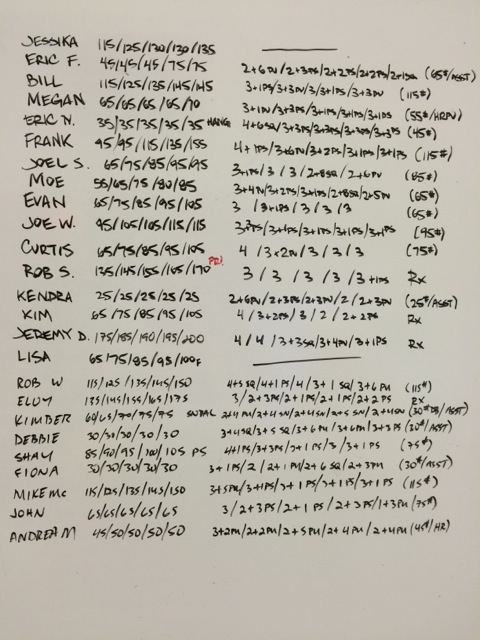 JESSIKA 115/125/130/130/135
ERIC F. 45/45/45/75/75 2+6PU/2+3PS/2+2PS/2+2PS/2+1SQ (65#/ASST)
BILL 115/125/135/145/145 3+1PS/3+3PU/3/3+1PS/3+3PU (115#)
MEGAN 65/65/65/65/70 3+1PU/3+3PS/3+1PS/3+1PS/3+1PS (55#/HRPU)
ERIC N. 35/35/35/35/35 HANG 4+6SQ/3+3PS/3+3PS/3+3PS/3+3PS (45#)
FRANK 95/95/115/135/155 4+1PS/3+6PU/3+2PS/3+1PS/3+1PS (115#)
JOEL S. 65/75/85/95/95 3+1PS/3/3/2+8SQ/2+6PU (85#)
MOE 55/65/75/80/85 3+4PU/3+2PS/3+1PS/2+8SQ/2+5PU (65#)
EVAN 65/75/85/95/105 3/3+1PS/3/3/3 (65#)
JOE W. 95/105/105/115/115 3+3PS/3+1PS/3+1PS/3+1PS/3+1PS (95#)
CURTIS 65/75/85/95/105 4/3+2PU/3/3/3 (75#)
ROB S. 135/145/155/165/170 PR! 3/3/3/3/3+1PS Rx
KENDRA 25/25/25/25/25 2+6PU/2+3PS/2+3PU/2/2+3PU (25#/ASST)
KIM 65/75/85/95/105 4/3+2PS/3/2/2+2PS Rx
JEREMY D. 175/185/190/195/200 4/4/3+3SQ/3+4PU/3+1PS Rx
LISA 65/75/85/95/100F
ROB W 115/125/135/145/150 4+5SQ/4+1PS/4/3+1SQ/3+6PU (115#)
ELOY 135/145/155/165/175 3/2+3PS/2+1PS/2+1PS/2+2PS Rx
KIMBER 60/65/70/75/75 (30#DB/ASST)
DEBBIE 30/30/30/30/30 3+4SQ/3+5SQ/3+6PU/3+6PU/3+3PS (30#/ASST)
SHAY 85/90/95/100/105 PS 4+1PS/3+3PS/3+1PS/3/3+1PS (75#)
FIONA 30/30/30/30/30 3+1PS/2/2+1PU/2+6SQ/2+3PU (30#/ASST)
MIKE MC 115/125/135/145/150 3+5PU/3+1PS/3+1PS/3+1PS/3+1PS (115#)
JOHN 65/65/65/65/65 3/2+3PS/2+1PS/2+3PS/1+3PU (75#)
ANDREA M 45/50/50/50/50 3+2PU/2+2PU/2+5PU/2+4PU/2+4PU (45#/HR)